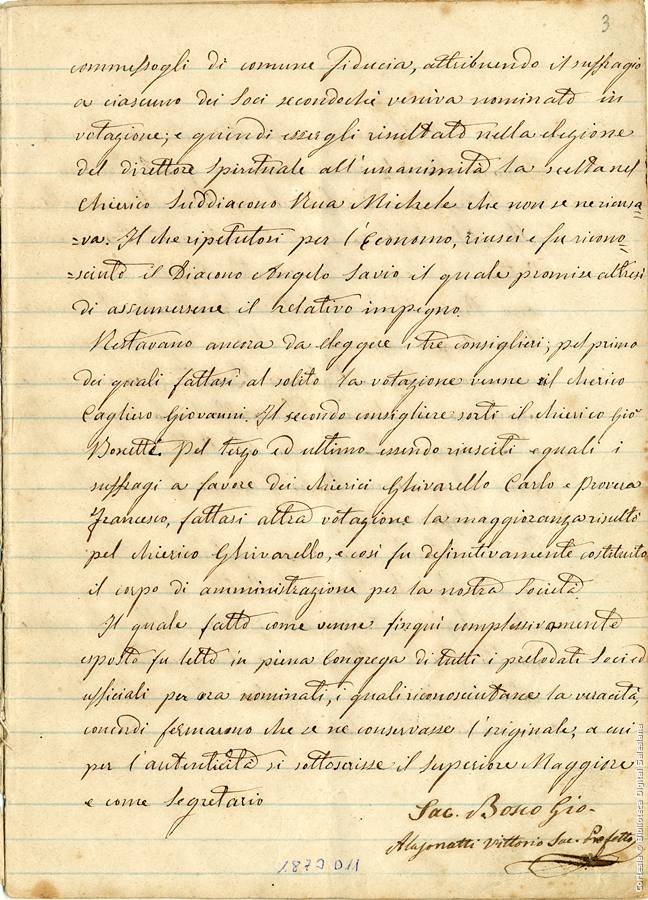 3
commessogli di comune fiducia, attribuendo il suffragio
a ciascuno dei Soci secondochè veniva nominato in
votazione; e quindi essergli risultato nella elezione
del direttore Spirituale all'unanimità la scelta nel
Chierico Suddiacono Rua Michele che non se ne ricusa=
=va. Il che ripetutosi per l'Economo, riuscì e fu ricono=
=sciuto il Diacono Angelo Savio il quale promise altresì
di assumersene il relativo impegno.
Restavano ancora da eleggere i tre consiglieri; pel primo
dei quali fattasi al solito la votazione venne il chierico
Cagliero Giovanni. Il secondo consigliere sortì il chierico Gio
Bonetti. Pel terzo ed ultimo essendo riusciti eguali i
suffragi a favore dei chierici Ghivarello Carlo e Provera
Francesco, fattasi altra votazione la maggioranza risultò
pel chierico Ghivarello, e così fu definitivamente costituito
il corpo di amministrazione per la nostra Società.
Il quale fatto come venne finqui complessivamente
esposto fu letto in piena Congrega di tutti i prelodati Soci ed
ufficiali per ora nominati, i quali riconosciutane la veracità,
concordi fermarono che se ne conservasse l'originale; a cui
per l'autenticità si sottoscrisse il Superiore Maggiore
e come Segretario
Sac. Bosco Gio-
Alasonatti Vittorio Sac. Prefetto
1873 D11
Cortesia © Biblioteca Digital Salesiana